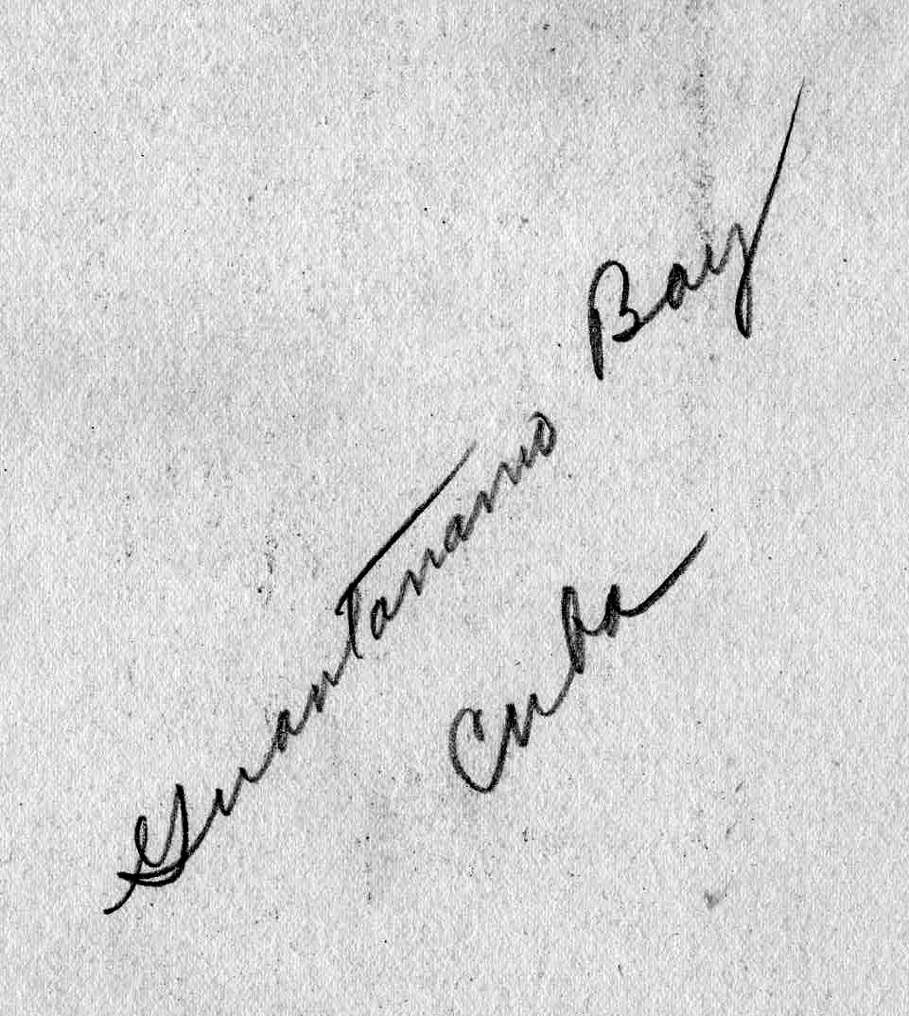 Guantanamo Bay
Cuba